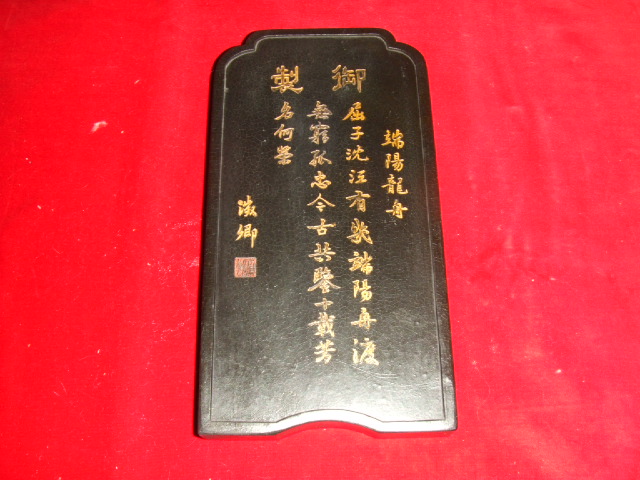 御製
端陽龍舟
屈子沈江有幾端陽舟渡
無窮孤忠今古共鑒千載芳
名何榮
澂卿